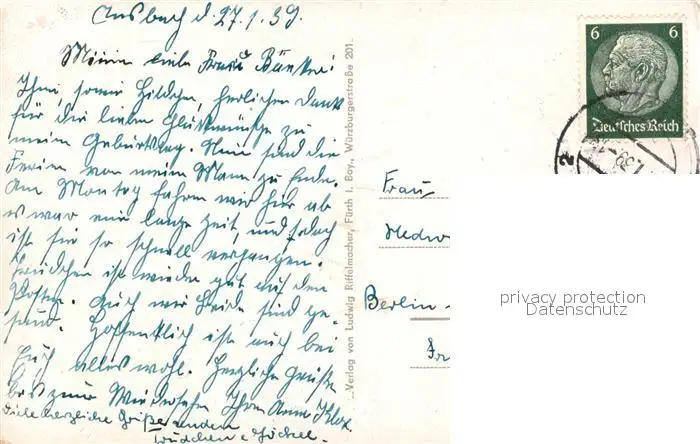 Ansbach d. 27.1.39.
Meine liebe Frau
Ihnen, sowie Hildchen, herzlichen Dank
für die lieben Glückwünsche zu
meinem Geburtstag. Nun sind die
Ferien von meinem Mann zu Ende.
Am Montag fahren wir hier ab
es war eine lange Zeit, und jedoch
ist sie so schnell vergangen.
ist wieder gut auf den
Posten. Auch wir beide sind ge-
sund. Hoffentlich ist auch bei
Euch alles wohl. Herzliche Grüße
bis zum Wiedersehn Ihre Anni
Viele herzliche Grüße senden
Verlag von Ludwig Riffelmacher, Fürth i. Bay., Würzburgerstraße 201
6 6
Deutsches Reich
2
Frau
Hedw
Berlin-
privacy protection
Datenschutz